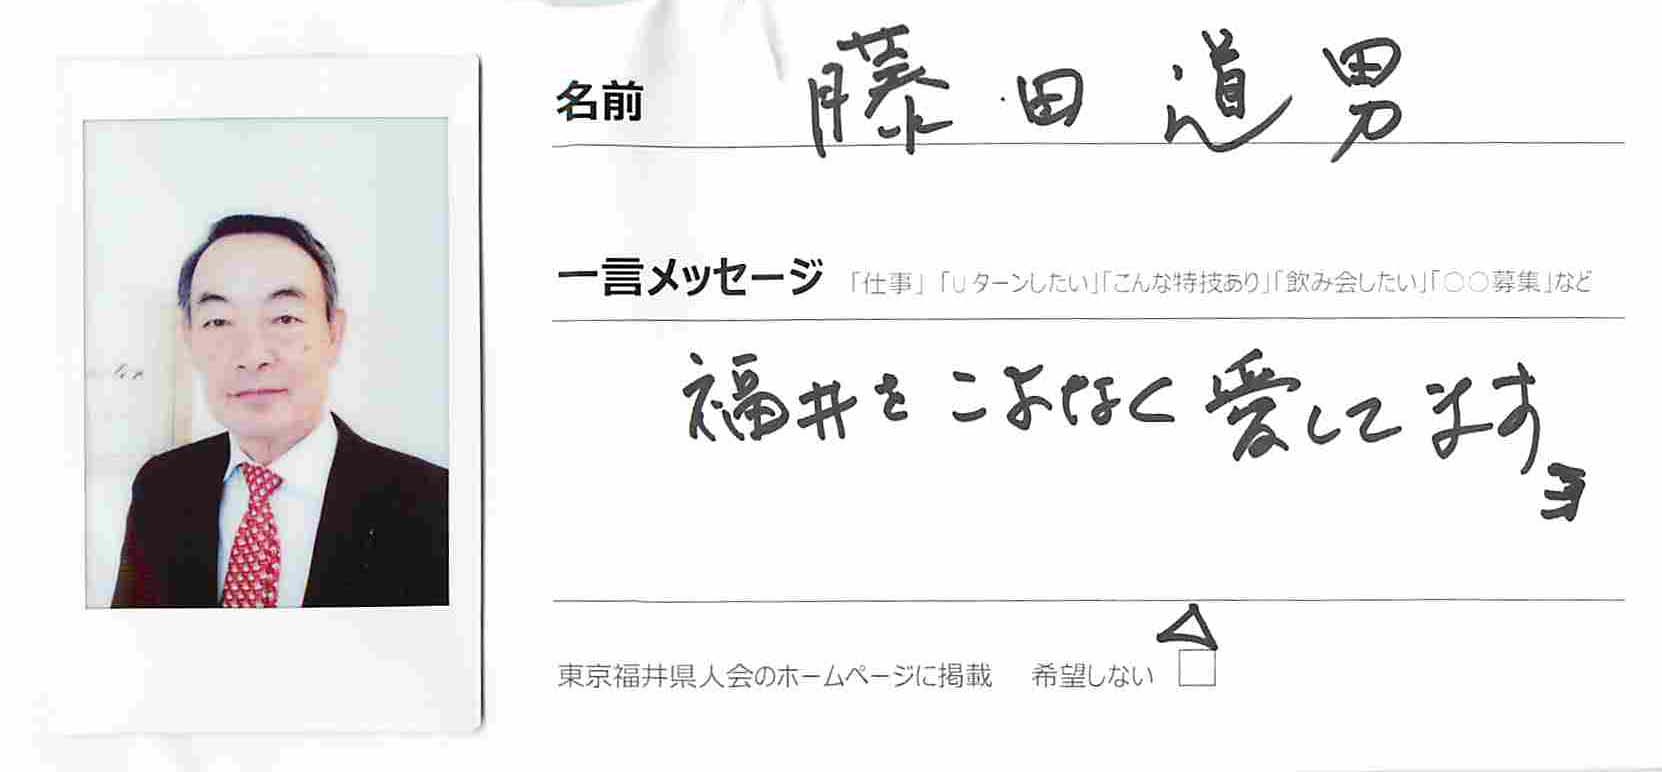 名前 藤田道男
一言メッセージ 「仕事」「Uターンしたい」「こんな特技あり」「飲み会したい」「○○募集」など
福井をこよなく愛してます
東京福井県人会のホームページに掲載 希望しない □